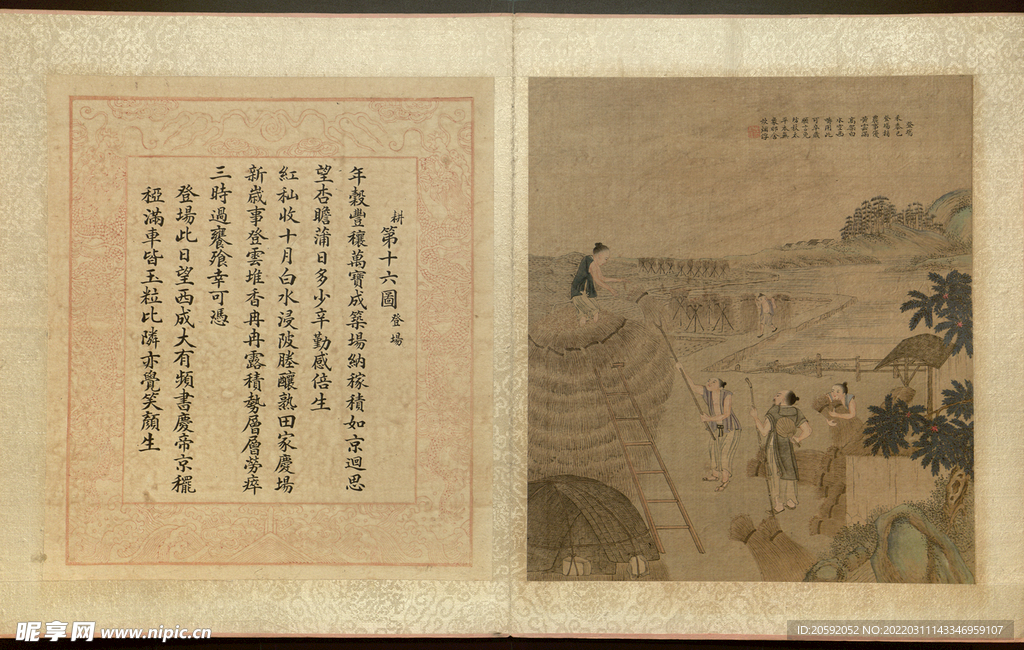 耕第十六圖 登場
年穀豐穰萬寶成築場納稼積如京迴思
望杏瞻蒲日多少辛勤感倍生
紅秈收十月白水浸陂塍釀熟田家慶場
新歲事登雲堆香冉冉露積勢層層勞瘁
三時過饔飧幸可憑
登場此日望西成大有頻書慶帝京穲
稏滿車皆玉粒比隣亦覺笑顏生
登場
禾黍已
登場
農事優
黃雲滿
高架白
水空西
疇用此
可卒歲
平本無
昵享网 www.nipic.cn
ID:20592052 NO:20220311143346959107